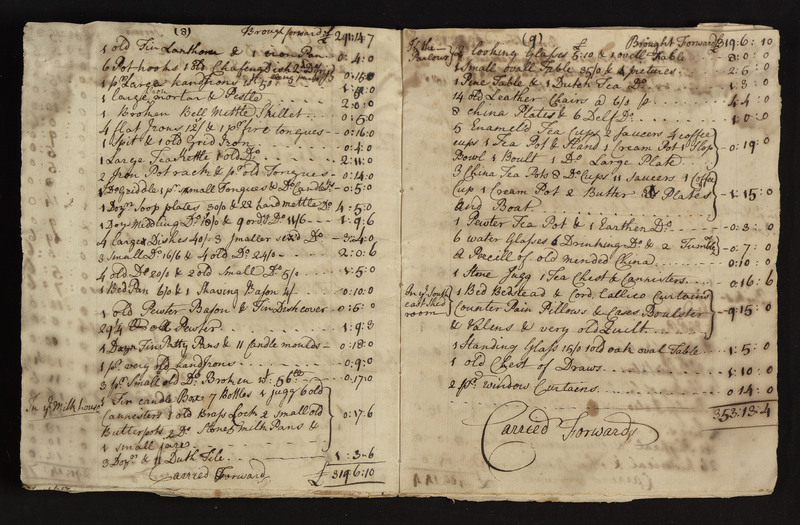 (8) Brought forward £ 291:4:7
1 old Tin Lanthorn & 1 iron Pan - 0:4:0
6 Pot hooks 18d Chafeing dish
1 pr. Large handirons 0:15:0
1 Large mortar & Pestle
1 Broken Bell mettle Skillet - 0:5:0
4 flat Irons 12/ & 1 pr. fire tongues - 0:16:0
1 Spit & 1 old Grid Iron - 0:4:0
1 Large Tea Kettle 1 old Do - 2:11:0
2 Iron Pot rack & pr. old Tongues - 0:14:0
1 Do Griddle 1 pr. small Tongues & Do - 0:5:0
1 Dozn. Soop plates 30/0 & 22 hard mettle Do 4:5:0
1 Dozn Middling Do 18/0 & 9 ord. Do 11/6 - 1:9:6
4 Larger Dishes 40/- 3 Smaller sized Do - 3:4:0
3 Small Do 16/6 & 4 old Do 24/0 - 2:0:6
4 old Do 20/0 & 2 old Small Do 5/0 - 1:5:0
1 Bed Pan 6/0 & 1 Shaving Bason 4/ - 0:10:0
1 old Pewter Bason & Tin Dish cover - 0:5:0
29 1/4 old Pewter - 1:9:3
1 Dozn Tin Patty Pans & 11 Candle moulds - 0:18:0
1 pr. very old handirons - 0:9:0
3 pr. Small old Do Broken - 0:17:0
In ye Milk house
1 Tin candle Box 7 Bottles 1 jugg 6 old
Cannisters 1 old Brass Lock 2 Small old
Butterpots 2 Do Stone 5 milk Pans &
1 Small jare
0:17:6
3 Dozn. & 11 Duth Tile - 1:3:6
Carried Forward £ 319:6:10
(9) Brought Forward £ 319:6:10
In the Parlour
2 looking Glasses £5:10 & 1 ovell Table - 8:0:0
1 Small ovall Table 35/0 & 4 pictures - 2:5:0
1 Pine Table & 1 Dutch Tea Do - 1:3:0
14 old Leather Chairs @ 6/ p - 4:4:0
8 China Plates & 6 Delf Do - 1:0:0
5 Enameld Tea Cups 2 Saucers 4 coffee
cups 1 Tea Pot & Stand 1 Cream Pot 1 Slop
Bowl 1 Boult 1 Do Large Plate
0:19:0
3 China Tea Pots 8 Do Cups 11 Saucers 1 Coffee
Cup 1 Cream Pot 2 Butter Plates
and Boat
1:15:0
1 Pewter Tea Pot & 1 Earthen Do - 0:3:0
6 water Glasses 6 Drinking Do & 2 Tumblers - 0:7:0
A Precell of old mended China - 0:10:0
1 Stone Jugg 1 Tea Chest & Cannisters - 0:16:6
In ye South east Shed room
1 Bed Bedstead & Cord Callico Curtains
Counter Pain Pillows & Cases Boulster
& Valens & very old Quilt
9:15:0
1 Standing Glass 15/0 1 old oak oval Table - 1:5:0
1 old Chest of Draws - 1:10:0
2 pr. window Curtains - 0:14:0
353:13:4
Carried Forward